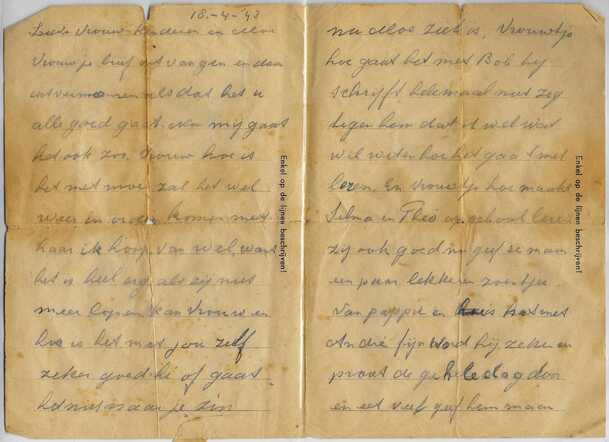 18-4-'43
Lieve Vrouw Kinderen en
Vrouwtje brief ontvangen en daar
uit vernomen als dat het u
alle goed gaat en mij gaat
het ook zoo. Vrouw hoe is
het met moe zal het wel
weer in orden komen met
haar ik hoop van wel, want
het is heel erg als zij niet
meer lopen kan Vrouw en
hoe is het met jou zelf
zeker goed hé of gaat
het niet naar je zin
Enkel op de lijnen beschrijven!
ziek is, Vrouwtje
hoe gaat het met Bob hij
schrijft helemaal niet zeg
tegen hem dat ik wel wat
wil weten hoe het gaat met
leren. En Vrouwtje hoe maakt
Selma en op school leren
zij ook goed nu geef ze maar
een paar lekkere zoentjes
van pappie en hoe is het met
André fijn word hij zeker en
praat de gehele dag door
en eet veel geef hem maar
Enkel op de lijnen beschrijven!